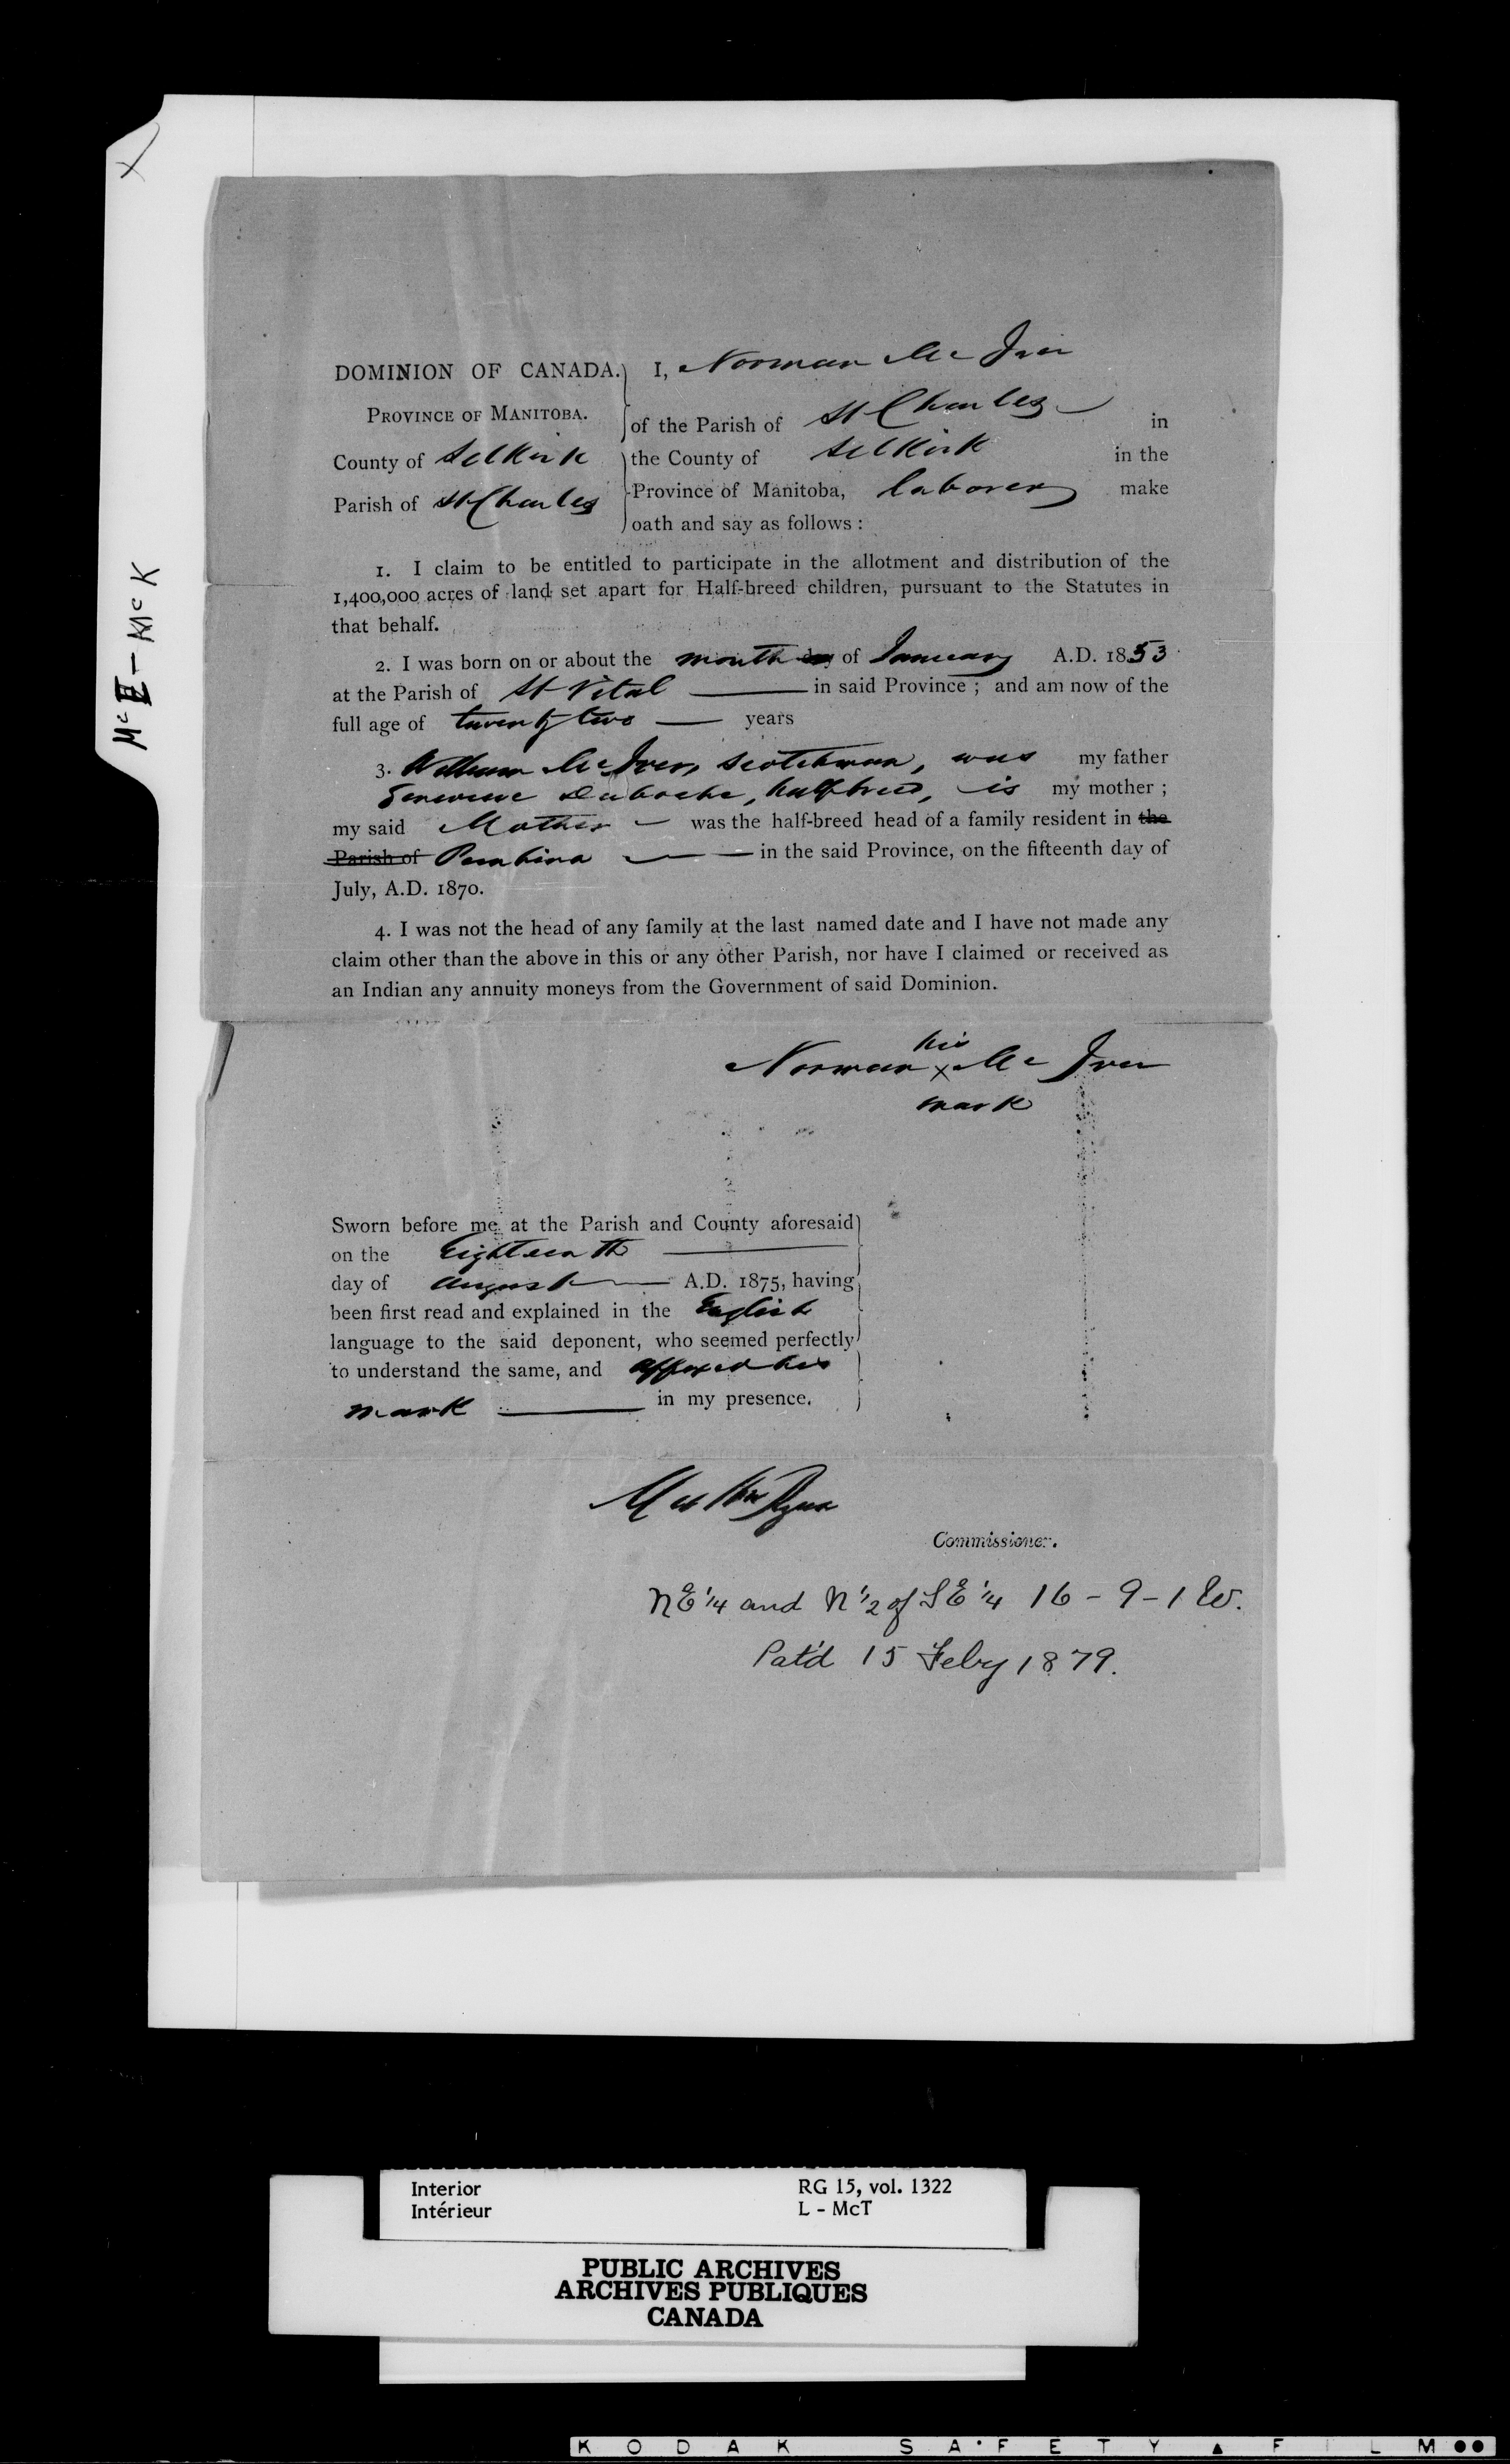 X
McI - McK
DOMINION OF CANADA. I, Norman McIver
PROVINCE OF MANITOBA. of the Parish of St Charles in
County of Selkirk the County of Selkirk in the
Parish of St Charles Province of Manitoba, laborer make
oath and say as follows :
1. I claim to be entitled to participate in the allotment and distribution of the
1,400,000 acres of land set apart for Half-breed children, pursuant to the Statutes in
that behalf.
2. I was born on or about the month day of January A.D. 1853
at the Parish of St Vital in said Province ; and am now of the
full age of twenty two years
3. William McIver, Scotchman, was my father
halfbreed, is my mother ;
my said Mother was the half-breed head of a family resident in the
Parish of Pembina in the said Province, on the fifteenth day of
July, A.D. 1870.
4. I was not the head of any family at the last named date and I have not made any
claim other than the above in this or any other Parish, nor have I claimed or received as
an Indian any annuity moneys from the Government of said Dominion.
his
Norman X McIver
mark
Sworn before me at the Parish and County aforesaid
on the Eighteenth
day of August A.D. 1875, having
been first read and explained in the English
language to the said deponent, who seemed perfectly
to understand the same, and affixed his
mark in my presence.
Ryan
Commissioner.
NE 1/4 and N 1/2 of SE 1/4 16 - 9 - 1 W.
Pat'd 15 Feby 1879.
Interior RG 15, vol. 1322
Intérieur L - McT
PUBLIC ARCHIVES
ARCHIVES PUBLIQUES
CANADA
KODAK SAFETY ▲ FILM ●●